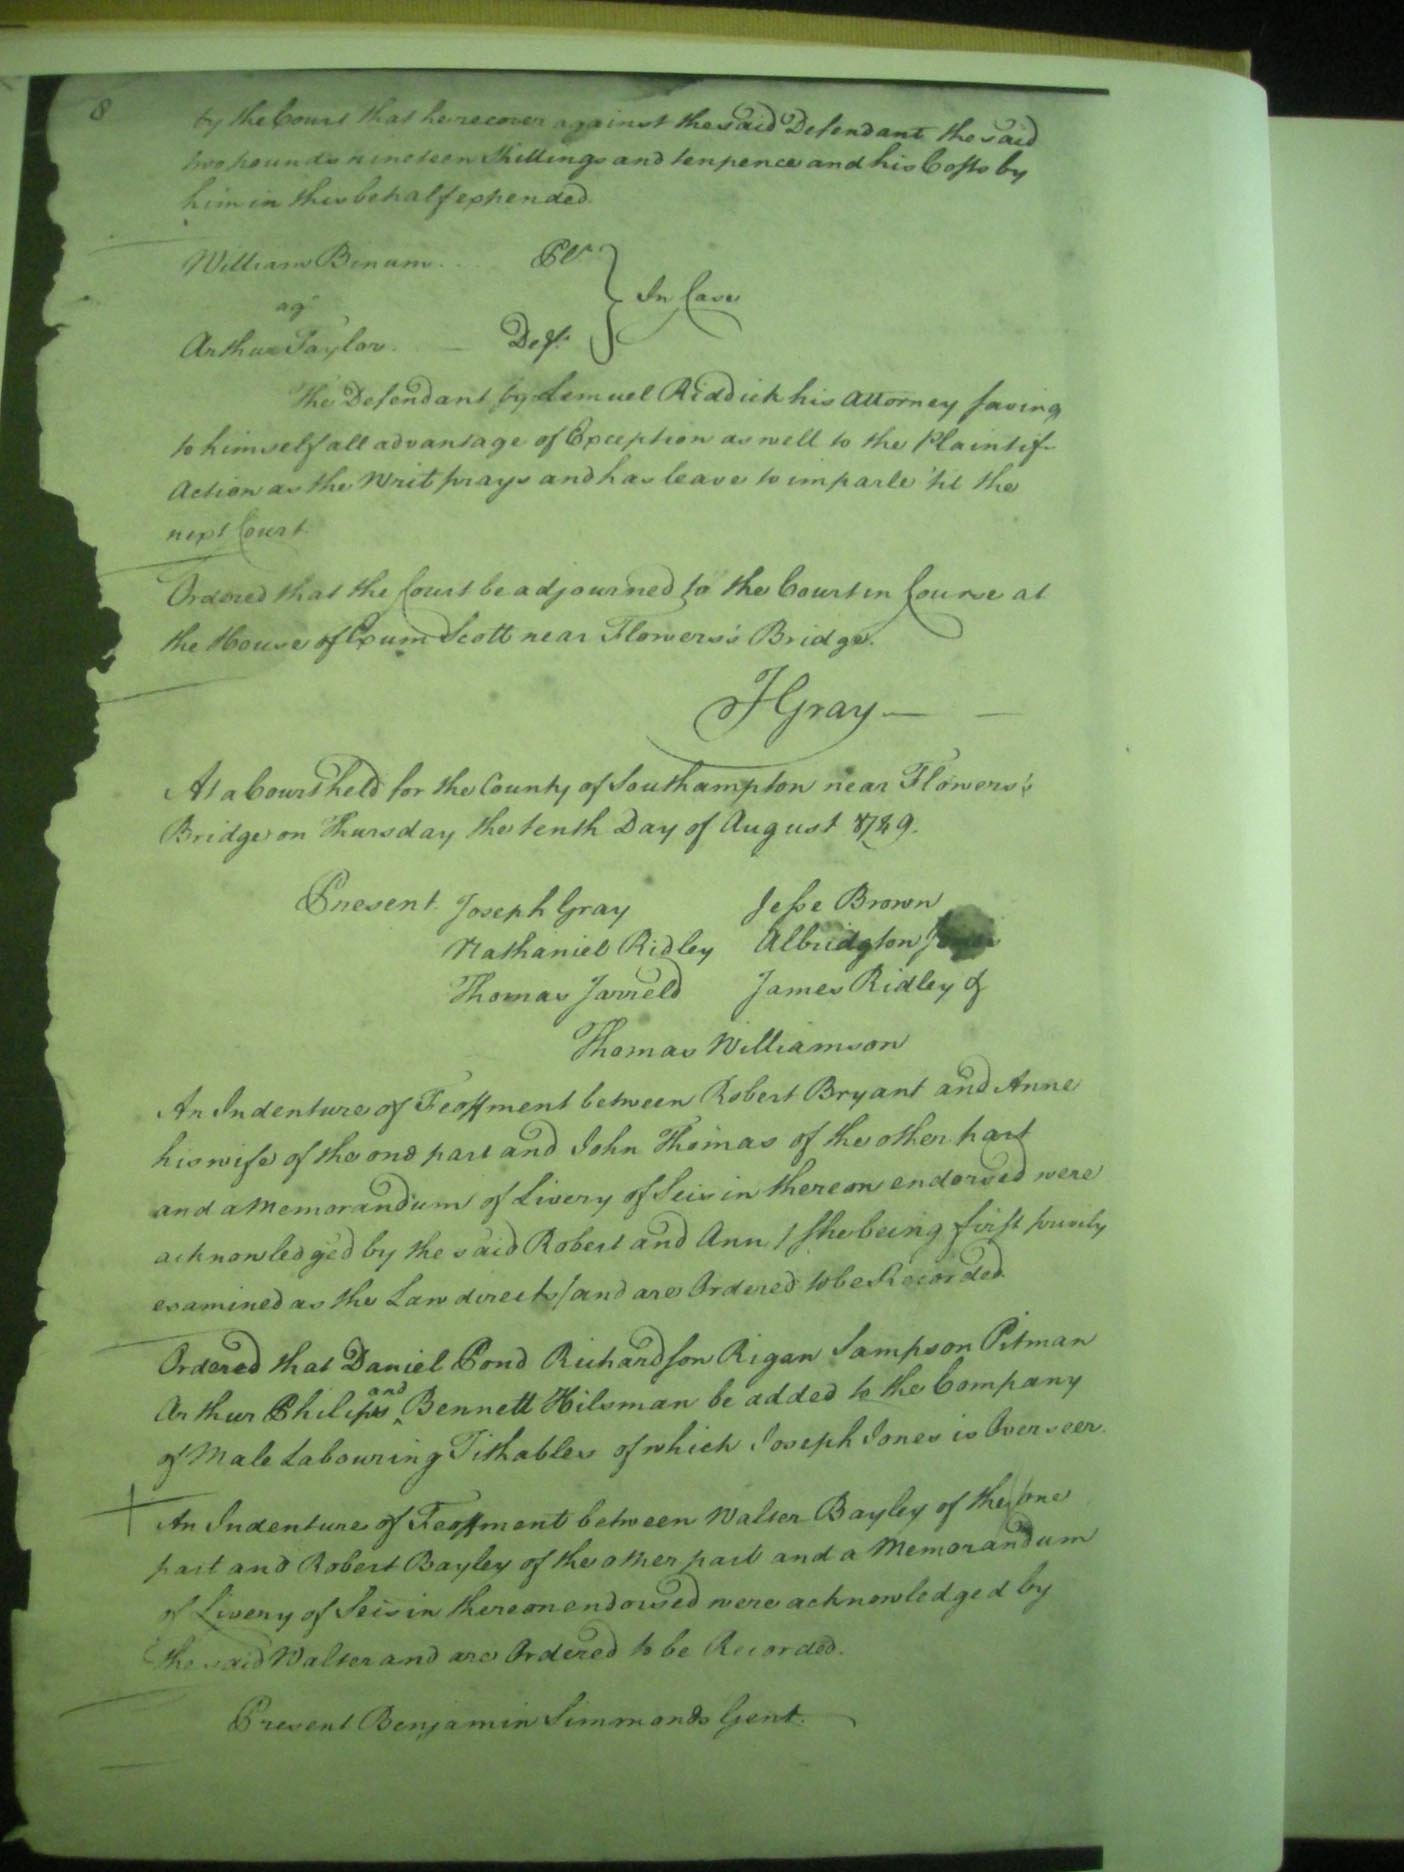 8
by the Court that he recover against the said Defendant the said
two pounds nineteen Shillings and tenpence and his Costs by
him in this behalf expended.
William Binum Plt
In Case
agt
Arthur Taylor Deft
The Defendant by Lemuel Riddick his Attorney saving
to himself all advantage of Exception as well to the Plaintifs
Action as the Writ prays and has leave to imparle 'til the
next Court.
Ordered that the Court be adjourned to the Court in Course at
the House of Exum Scott near Flowers's Bridge.
JGray
At a Court held for the County of Southampton near Flowers's
Bridge on Thursday the tenth Day of August 1749.
Present Joseph Gray Jesse Brown
Nathaniel Ridley Albridgton Jones
Thomas Jarreld James Ridley &
Thomas Williamson
An Indenture of Feoffment between Robert Bryant and Anne
his wife of the one part and John Thomas of the other part
and a Memorandum of Livery of Seisin thereon endorsed were
acknowledged by the said Robert and Ann / she being first privily
examined as the Law directs / and are Ordered to be Recorded.
Ordered that Daniel Pond Richardson Rigan Sampson Pitman
Arthur Philips and Bennett Hilsman be added to the Company
of Male Labouring Tithables of which Joseph Jones is Overseer.
An Indenture of Feoffment between Walter Bayley of the one
part and Robert Bayley of the other part and a Memorandum
of Livery of Seisin thereon endorsed were acknowledged by
the said Walter and are Ordered to be Recorded.
Present Benjamin Simmonds Gent.